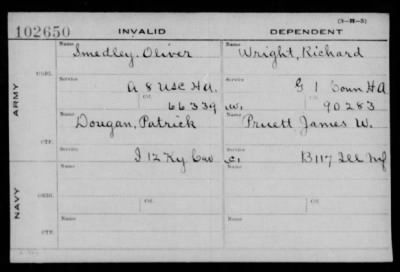 (3-H-3)
102650 INVALID DEPENDENT
Name Name
Smedley, Oliver Wright, Richard
ORIG. Service Service
A 8 USC H A. G 1 Conn H A
ARMY Ctf. Ctf.
66339 W. 90283
Name Name
Dougan, Patrick Pruett, James W.
CTF. Service Service
I 12 Ky Cav C. B 117 Ill Inf
Name Name
ORIG.
NAVY Ctf. Ctf.
Name Name
CTF.